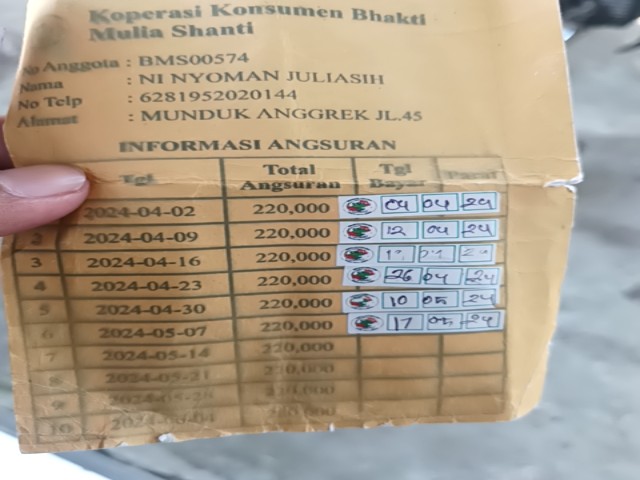 Koperasi Konsumen Bhakti
Mulia Shanti
No Anggota : BMS00574
Nama : NI NYOMAN JULIASIH
No Telp : 6281952020144
Alamat : MUNDUK ANGGREK JL.45
INFORMASI ANGSURAN
Tgl Total Angsuran Tgl Bayar Paraf
2024-04-02 220,000 04 04 24
2 2024-04-09 220,000 12 04 24
3 2024-04-16 220,000
4 2024-04-23 220,000 26 04 24
5 2024-04-30 220,000 10 05 24
6 2024-05-07 220,000 17 05 24
7 2024-05-14 220,000
8 2024-05-21 220,000
9 2024-05-28 220,000
10 2024-06-04 220,000